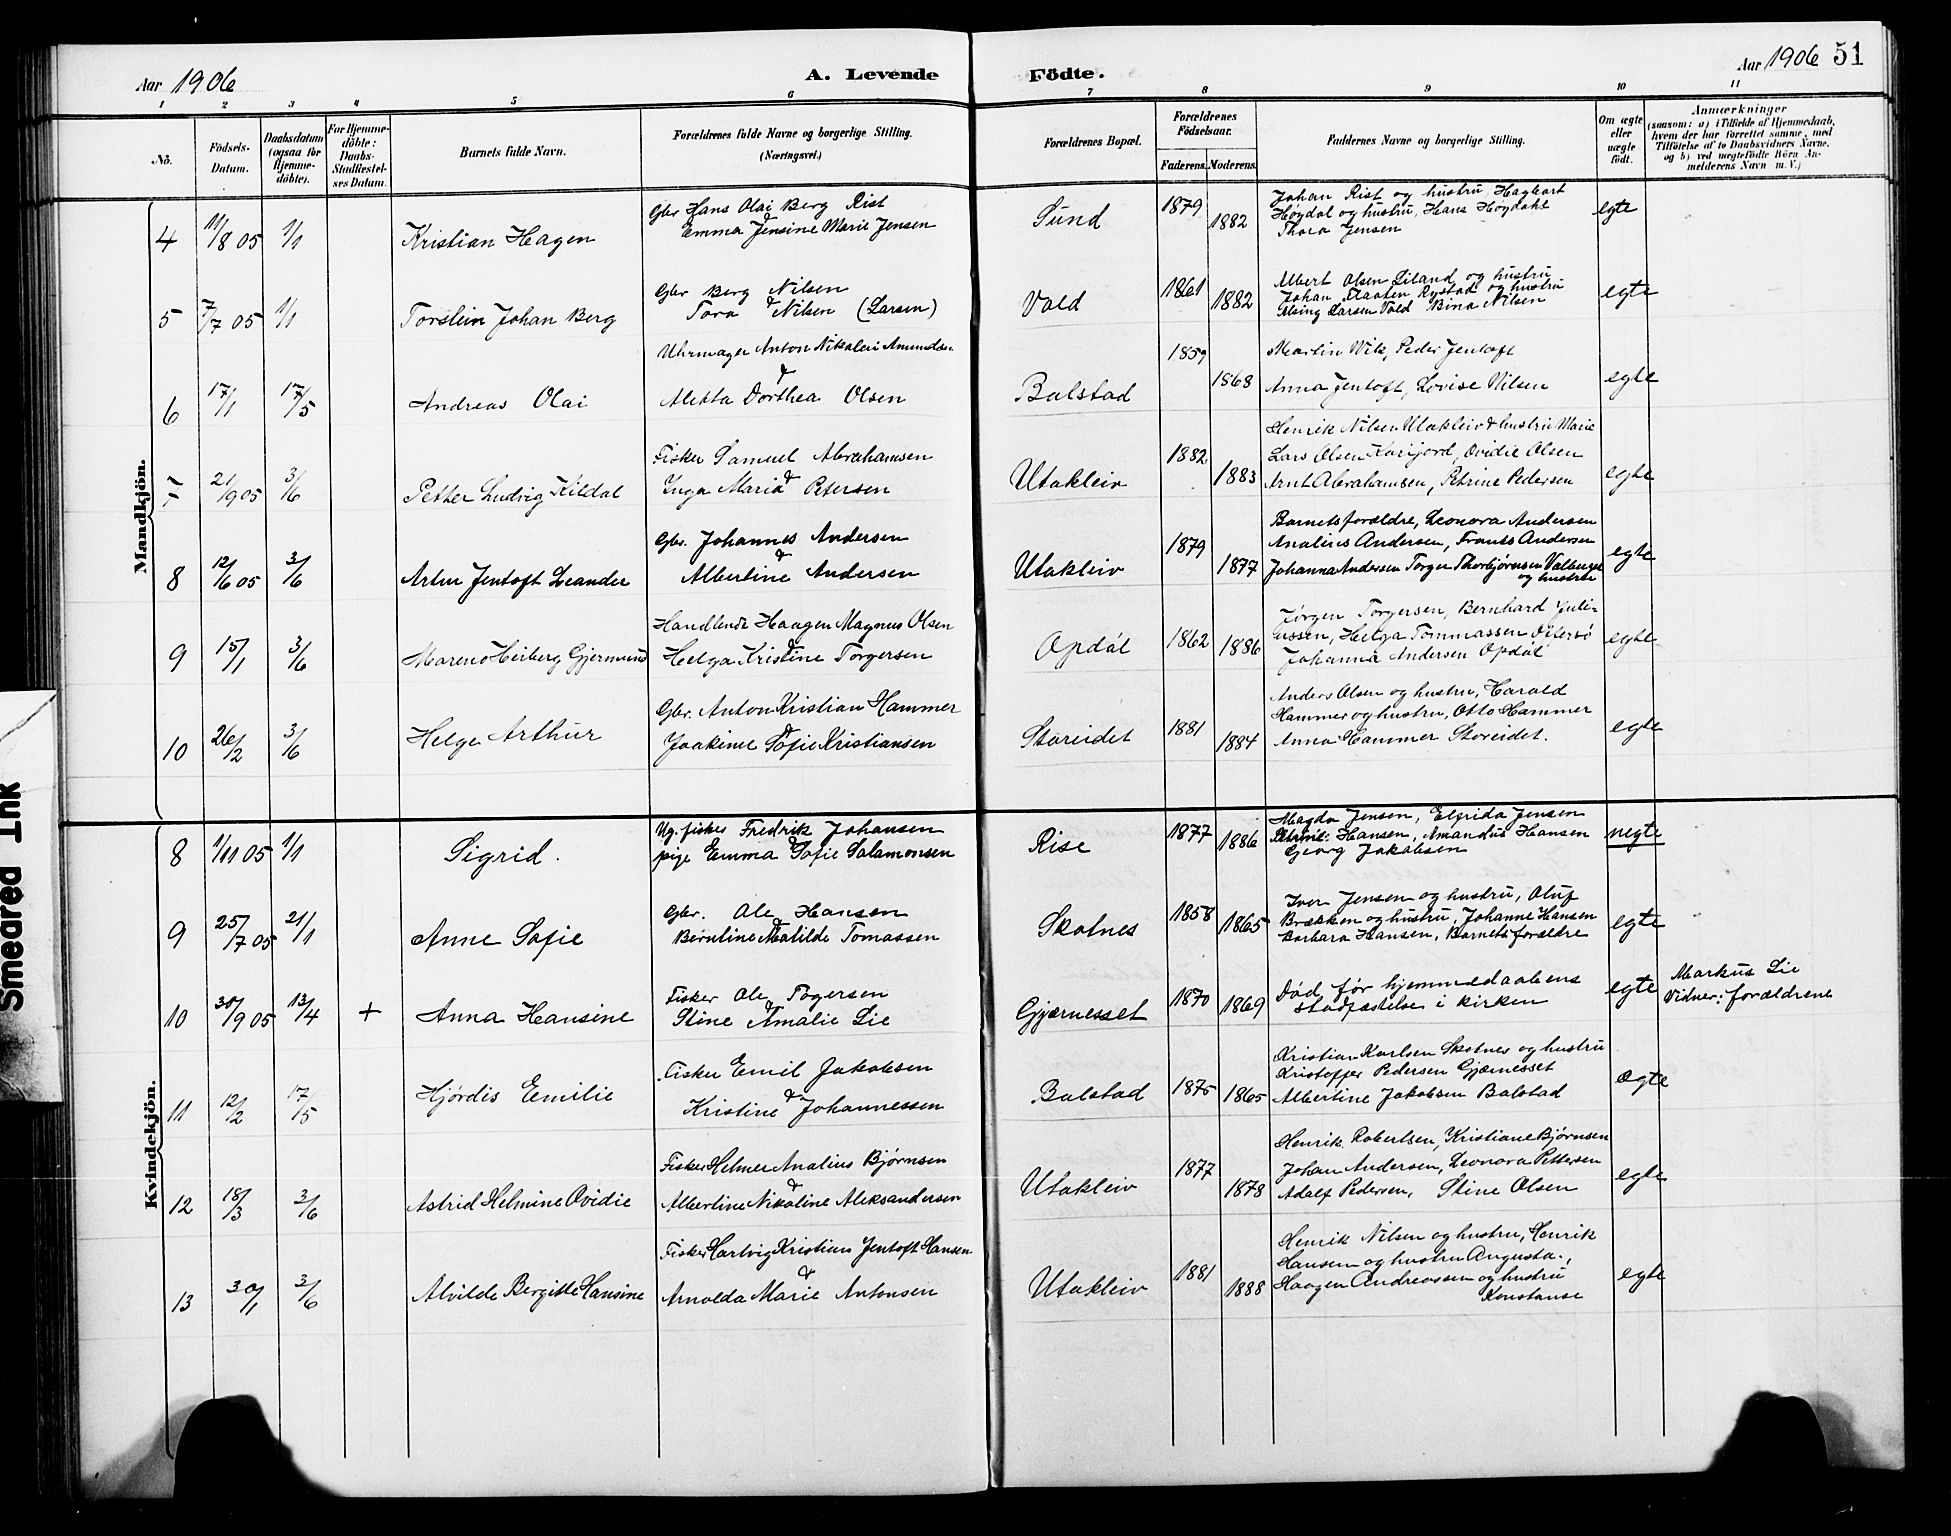 Aar 1906
A. Levende
Födte.
Aar 1906 51
1 2 3 4 5 6 7 8 9 10 11
Nö.
Födsels-
Datum.
Daabsdatum
(ogsaa för
Hjemme-
döbte).
For Hjemme-
döbte:
Daabs-
Stadfæstel-
ses Datum.
Barnets fulde Navn.
Forældrenes fulde Navne og borgerlige Stilling.
(Næringsvei.)
Forældrenes Bopæl.
Forældrenes
Födselsaar.
Faderens. Moderens.
Faddernes Navne og borgerlige Stilling.
Om ægte
eller
uægte
födt.
Anmærkninger
(saasom: a) i Tilfælde af Hjemmedaab,
hvem der har forrettet samme, med
Tilföielse af to Daabsvidners Navne,
og b) ved uægtefödte Börn An-
melderens Navn m. V.)
Mandkjön.
4 11/8 05 1/1 Kristian Hagen
Gbr Hans Olai Berg Rist
&
Emma Jensine Marie Jensen
Sund 1879 1882
Johan Rist og hustru, Hagbart
Høydal og hustru, Hans Høydahl
Thora Jensen
egte
5 7/7 05 1/1 Torstein Johan Berg
Gbr Berg Nilsen
&
Tora Nilsen (Larsen)
Vold 1861 1882
Albert Olsen Liland og hustru
Johan Flaaten Rystad og hustru
Elsing Larsen Vold Bina Nilsen
egte
6 17/1 17/5 Andreas Olai
Uhrmager Anton Nikolai Amundsen
&
Aletta Dorthea Olsen
Balstad 1859 1868
Martin Wik, Peder Jentoft
Anna Jentoft, Lovise Nilsen
egte
7 21/9 05 3/6 Petter Ludvig Kildal
Fisker Samuel Abrahamsen
&
Inga Maria Petersen
Utakleiv 1882 1883
Henrik Nilsen Utakleiv & hustru Marie
Lars Olsen Karijord, Ovidie Olsen
Arnt Abrahamsen, Petrine Pedersen
egte
8 12/6 05 3/6 Artur Jentoft Leander
Gbr. Johannes Andersen
&
Albertine Andersen
Utakleiv 1879 1877
Barnets forældre, Leonora Andersen
Analius Andersen, Frants Andersen
Johanna Andersen Torger Thorbjørnsen Valberg
og hustru
egte
9 15/1 3/6 Mareno Heiberg Gjermund
Handlende Haagen Magnus Olsen
&
Helga Kristine Torgersen
Opdøl 1862 1886
Jørgen Torgersen, Bernhard Juli-
ussen, Helga Tommassen
Johanna Andersen Opdøl
egte
10 26/2 3/6 Helge Arthur
Gbr. Anton Kristian Hammer
&
Joakine Sofie Kristiansen
Storeidet 1881 1884
Anders Olsen og hustru, Harald
Hammer og hustru, Otto Hammer
Anna Hammer Storeidet.
egte
Kvindekjön.
8 1/11 05 1/1 Sigrid.
Ug. fisker Fredrik Johansen
&
pige Emma Sofie Salamonsen
Rise 1877 1886
Magda Jensen, Elfrida Jensen
Petrine Hansen, Amandus Hansen
Georg Jakobsen
uegte
9 25/7 05 21/1 Anne Sofie
Gbr. Ole Hansen
&
Berntine Matilde Tomassen
Skotnes 1858 1865
Iver Jensen og hustru, Oluf
Brækken og hustru, Johanne Hansen
Barbara Hansen, Barnets forældre
egte
10 30/9 05 13/4 + Anna Hansine
Fisker Ole Togersen
&
Stine Amalie Lie
Gjærnesset 1870 1869
Död før hjemmedaabens
stadfæstelse i kirken
egte
Markus Lie
Vidner: forældrene
11 12/2 17/5 Hjørdis Emilie
Fisker Emil Jakobsen
&
Kristine Johannessen
Balstad 1875 1865
Kristian Karlsen Skotnes og hustru
Kristoffer Pedersen Gjærnesset
Albertine Jakobsen Balstad
ægte
12 18/3 3/6 Astrid Helmine Ovidie
Fisker Helmer Analius Bjørnsen
&
Albertine Nikoline Aleksandersen
Utakleiv 1877 1878
Henrik Robertsen, Kristiane Bjørnsen
Johan Andersen, Leonora Pettersen
Adolf Pedersen, Stine Olsen
egte
13 30/1 3/6 Alvilde Bergitte Hansine
Fisker Hartvig Kristians Jentoft Hansen
&
Arnolda Marie Antonsen
Utakleiv 1881 1888
Henrik Nilsen og hustru, Henrik
Hansen og hustru Augusta,
Haagen Andreassen og hustru
Konstanse
egte
Smeared Ink